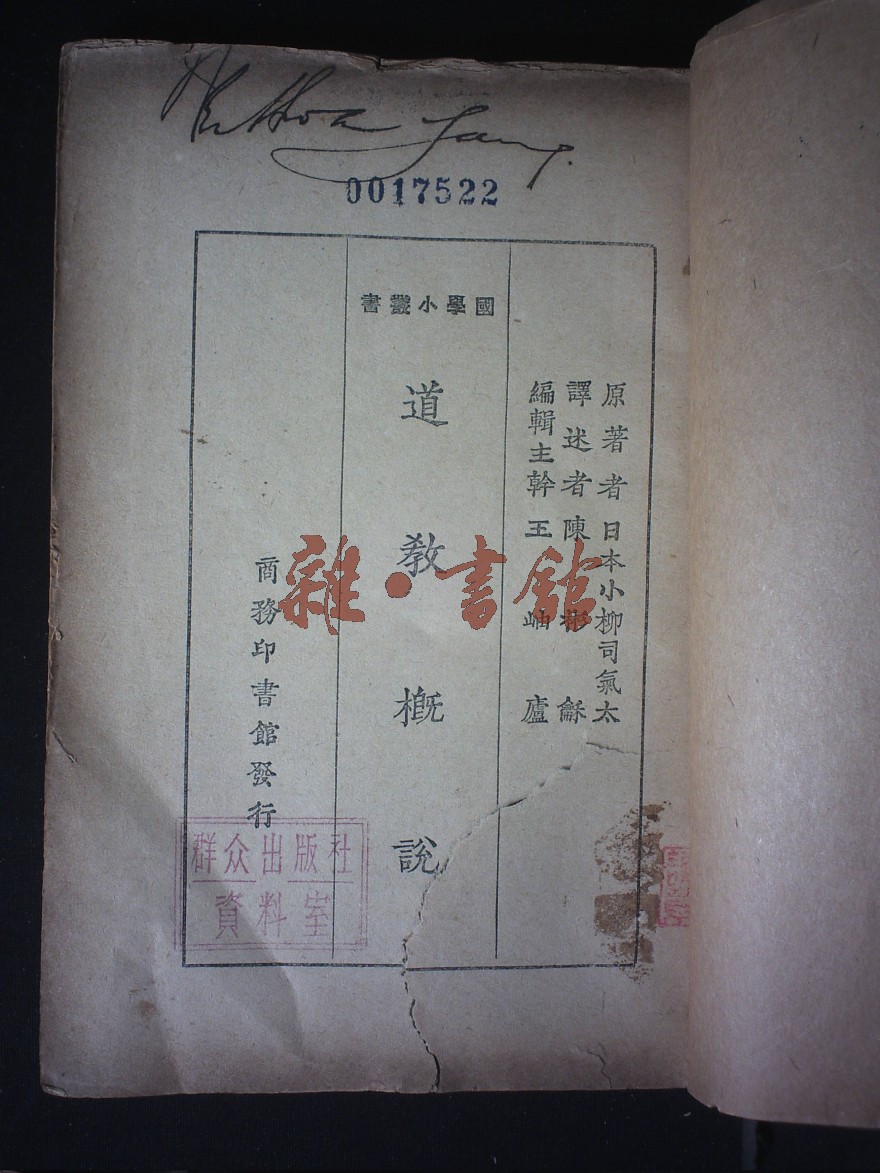 0017522
原著者日本小柳司氣太
譯述者陳彬龢
編輯主幹王岫廬
國學小叢書
道教概說
商務印書館發行
群众出版社
資料室
雜·書館